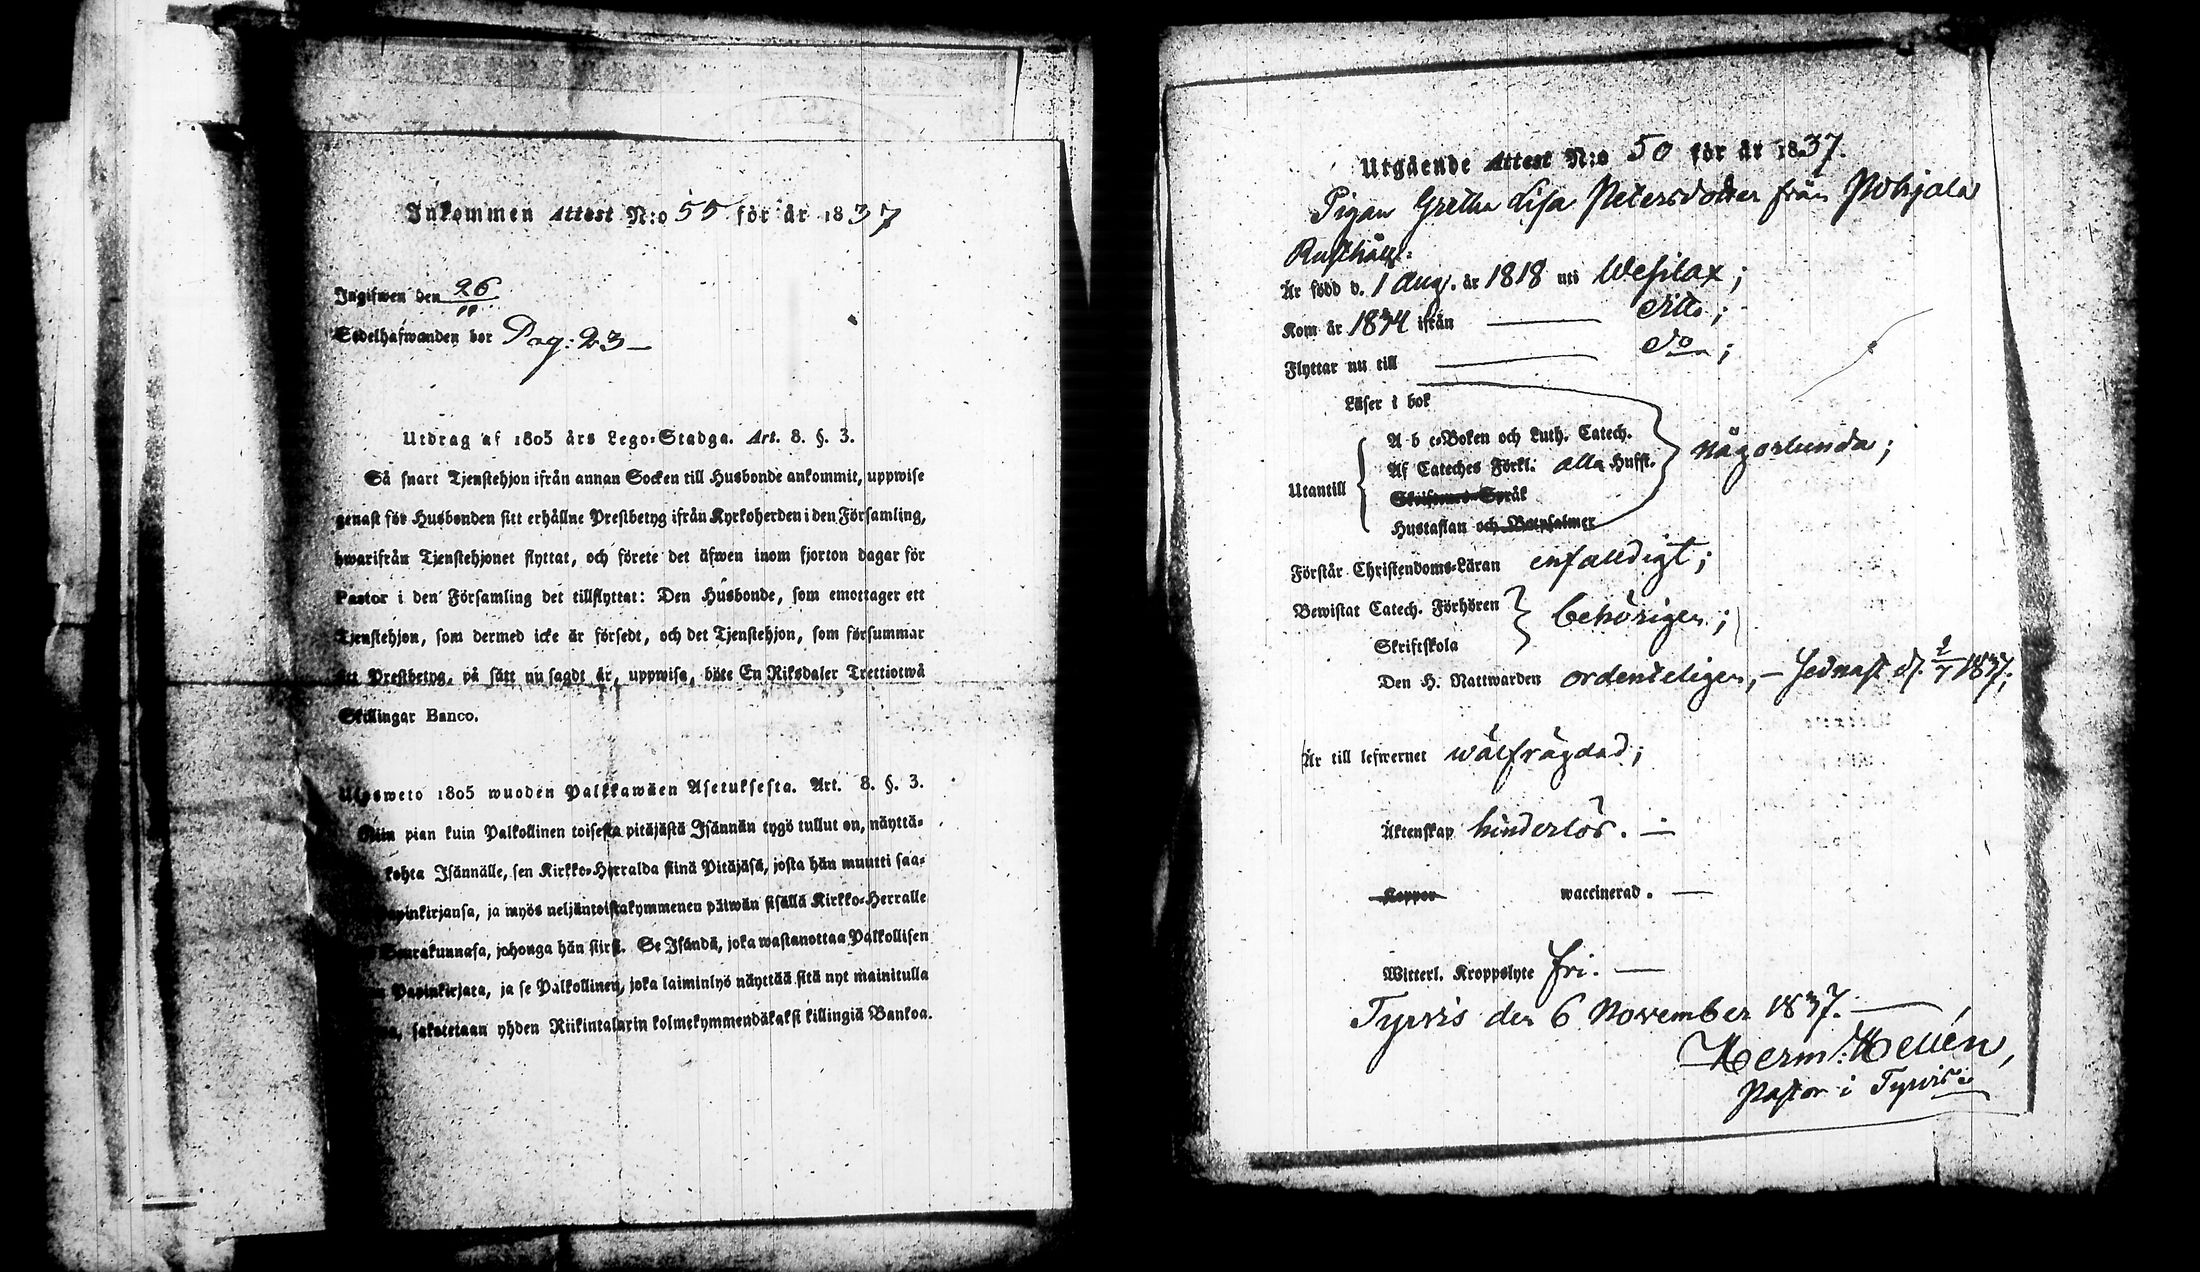 Inkommen Attest N:o 55 för år 1837
Ingifwen den 26/11
Sedelhafwanden bor Pag: 23
Utdrag af 1805 års Lego-Stadga. Art. 8. §. 3.
Så snart Tjenstehjon ifrån annan Socken till Husbonde ankommit, uppwise
genast för Husbonden sitt erhållne Prestbetyg ifrån Kyrkoherden i den Församling,
hwarifrån Tjenstehjonet flyttat, och förete det äfwen inom fjorton dagar för
Pastor i den Församling det tillflyttat: Den Husbonde, som emottager ett
Tjenstehjon, som dermed icke är försedt, och det Tjenstehjon, som försummar
Prestbetyg, på sätt nu sagdt är, uppwisa, böte En Riksdaler Trettiotwå
Skillingar Banco.
Ulosweto 1805 wuoden Palkkawäen Asetuksesta. Art. 8. §. 3.
Niin pian kuin Palkollinen toisesta pitäjästä Isännän tygö tullut on, näyttä-
kohta Isännälle, sen Kirkko-Herralda siinä Pitäjäsä, josta hän muutti saa-
Papinkirjansa, ja myös neljäntoistakymmenen päiwän sisällä Kirkko-Herralle
Seurakunnasa, johonga hän siirsi. Se Isändä, joka wastanottaa Palkollisen
Papinkirjata, ja se Palkollinen, joka laiminlyö näyttää sitä nyt mainitulla
sakotetaan yhden Riikintalarin kolmekymmendäkaksi killingiä Bankoa.
Utgående Attest N:o 50 för år 1837.
Pigan Gretha Lisa Petersdotter från Pohjala
Rusthåll:
Är född d. 1 Aug. år 1818 uti Wesilax;
Kom år 1834 ifrån — ditto;
Flyttar nu till — do;
Läser i bok
A b c-Boken och Luth. Catech.
Utantill Af Cateches Förkl. alla Hufst. någorlunda;
Skriftenes-Språk
Hustaflan och Botpsalmer
Förstår Christendoms-Läran enfalldigt;
Bewistat Catech. Förhören behörigen;
Skriftskola
Den H. Nattwarden ordenteligen, — sednast d. 2/7 1837;
Är till lefwernet wälfrägdad;
Äktenskap hinderlös. —
Koppor waccinerad. —
Witterl. Kroppslyte fri. —
Tyrvis den 6 November 1837. —
Herm: Hellén,
Pastor i Tyrvis